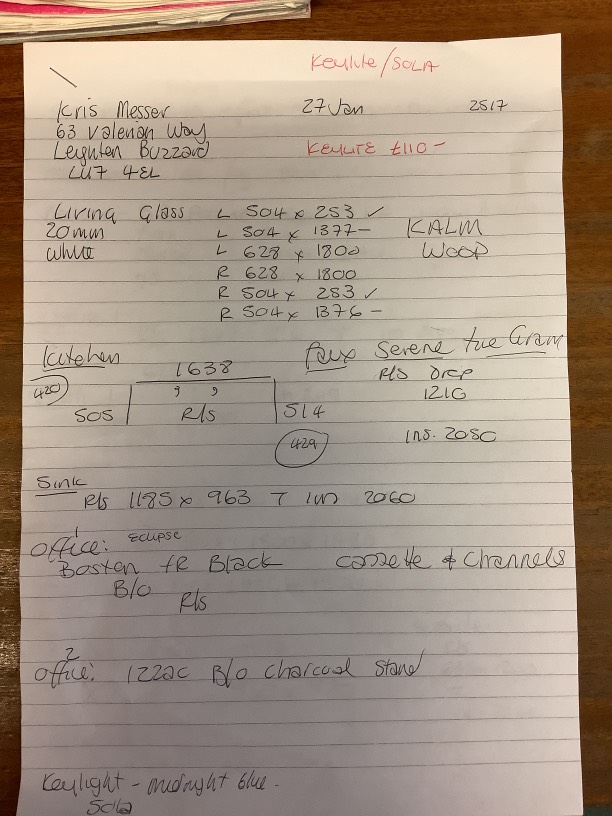 Keylite/SOLA
Kris Messer 27 Jan 2517
63 Valerian Way
Leighten Buzzard KEYLITE £110-
LU7 4EL
Living Glass L 504 x 253 ✓
20mm L 504 x 1377- KALM
white L 628 x 1800 WOOD
R 628 x 1800
R 504 x 253 ✓
R 504 x 1376 -
Kitchen 1638 Faux Serene True Grain
420 R/s Drop
505 R/s 514 1210
429 Ins. 2050
Sink
R/s 1185 x 963 T ins 2060
Office: 1 Eclipse
Bosten FR Black cassette & Channels
B/o
R/s
Office: 2 1220c B/o Charcoal Stand
Keylight - midnight blue -
Sola